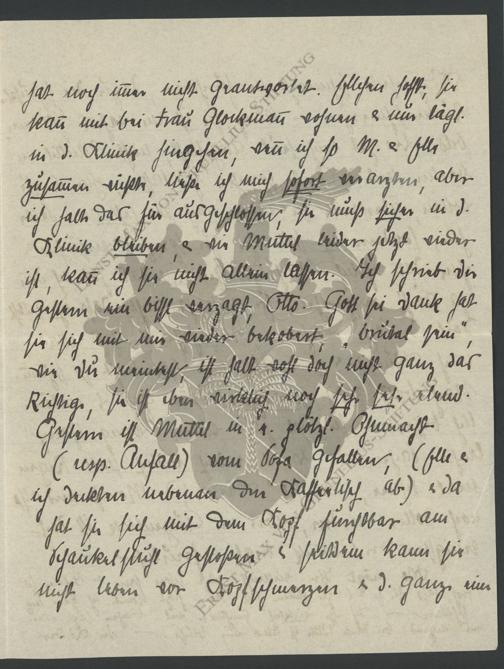 hat noch im̄er nicht geantwortet. Ellchen hofft, sie
kan̄ mit bei Frau Glockman̄ wohnen & nur tägl.
in d. Klinik hingehen, wen̄ ich so M. & Elle
zusam̄en wüßte, ließe ich mich sofort verarzten, aber
ich halte das für ausgeschlossen, sie muß sicher in d.
Klinik bleiben, & wie Muttel leider jetzt wieder
ist, kan̄ ich sie nicht allein lassen. Ich schrieb Dir
gestern ein bissl verzagt, Otto. Gott sei Dank hat
sie sich mit uns wieder bekobert, „brutal sein",
wie Du meintest, ist halt wohl doch nicht ganz das
Richtige, sie ist eben wirklich noch sehr sehr elend.
Gestern ist Muttel in e. plötzl. Ohnmacht
(resp. Anfall) vom Sofa gefallen, (Elle &
ich deckten nebenan den Kaffeetisch ab) & da
hat sie sich mit dem Kopf furchtbar am
Schaukelstuhl gestoßen & seitdem kann sie
nicht leben vor Kopfschmerzen & d. ganze eine